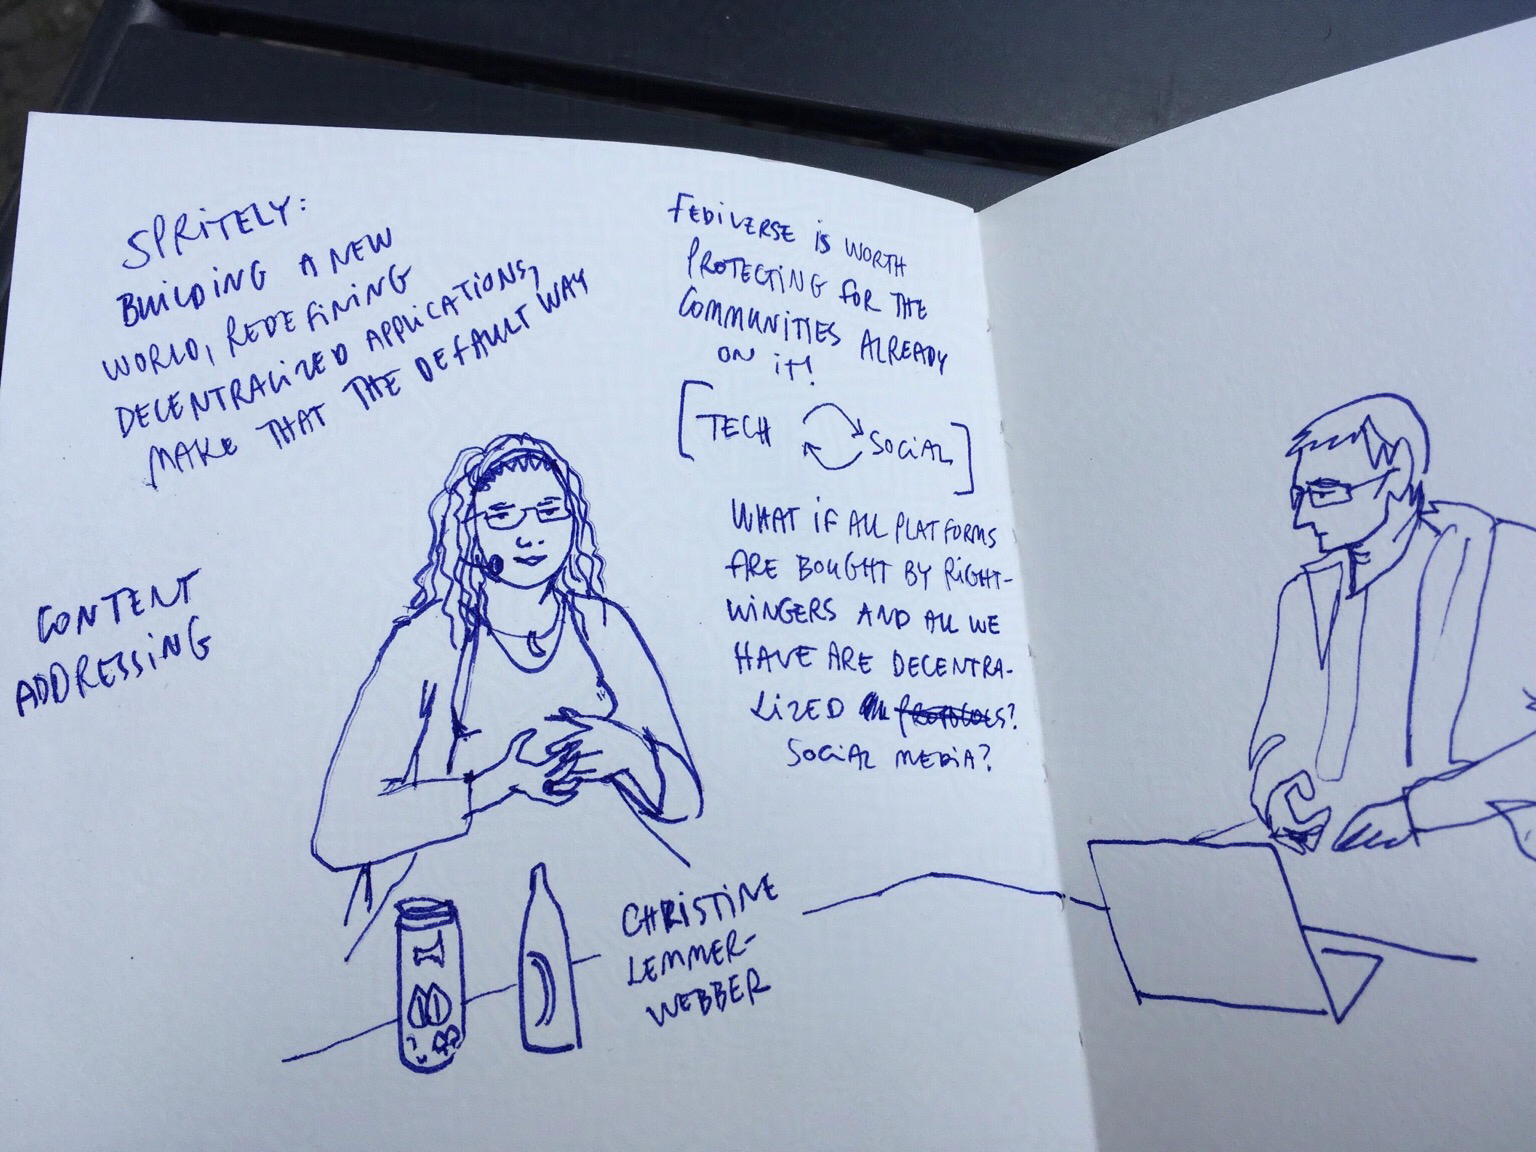 SPRITELY:
BUILDING A NEW
WORLD, REDEFINING
DECENTRALIZED APPLICATIONS,
MAKE THAT THE DEFAULT WAY
CONTENT
ADDRESSING
FEDIVERSE IS WORTH
PROTECTING FOR THE
COMMUNITIES ALREADY
ON IT!
[TECH SOCIAL]
WHAT IF ALL PLATFORMS
ARE BOUGHT BY RIGHT-
WINGERS AND ALL WE
HAVE ARE DECENTRA-
LIZED PROTOCOLS?
SOCIAL MEDIA?
CHRISTINE
LEMMER-
WEBBER